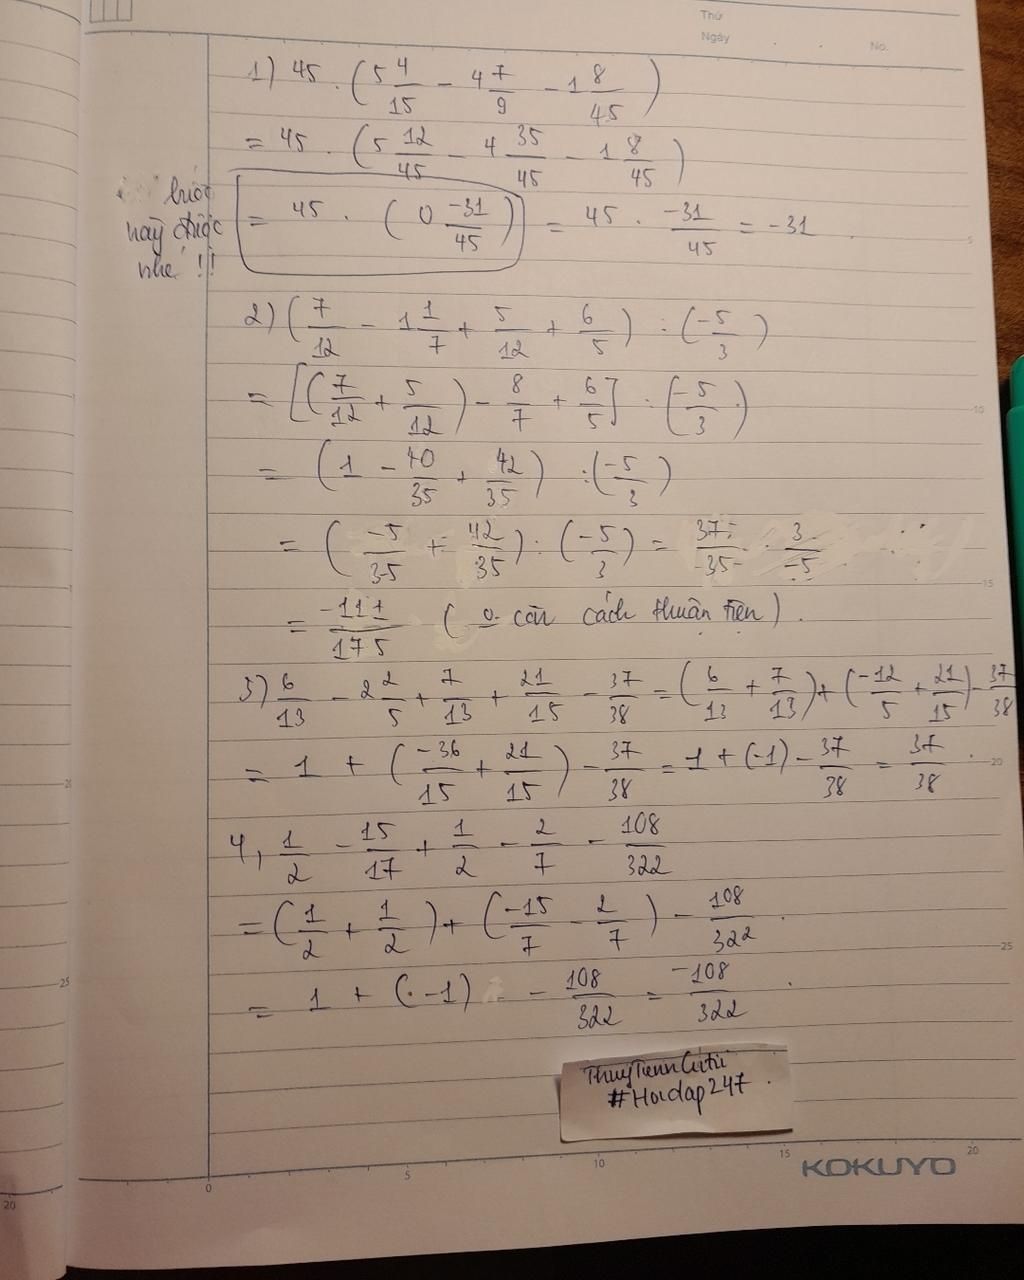 Thứ
Ngày . . No.
1) 45 . (5 4/15 - 4 7/9 - 1 8/45)
= 45 . (5 12/45 - 4 35/45 - 1 8/45)
này được
nhé !!
= 45 . (0 -31/45) = 45 . -31/45 = -31
2) (7/12 - 1 1/7 + 5/12 + 6/5) : (-5/3)
= [(7/12 + 5/12) - 8/7 + 6/5] : (-5/3)
= (1 - 40/35 + 42/35) : (-5/3)
= (-5/35 + 42/35) : (-5/3) = 37/35 . 3/-5
= -111/175 (o. cần cách thuận tiện).
3) 6/13 - 2 2/5 + 7/13 + 21/15 - 37/38 = (6/13 + 7/13) + (-12/5 + 21/15) - 37/38
= 1 + (-36/15 + 21/15) - 37/38 = 1 + (-1) - 37/38 = 37/38 .
4, 1/2 - 15/17 + 1/2 - 2/7 - 108/322
= (1/2 + 1/2) + (-15/7 - 2/7) - 108/322 .
= 1 + (-1) - 108/322 = -108/322 .
#Hoidap247
KOKUYO